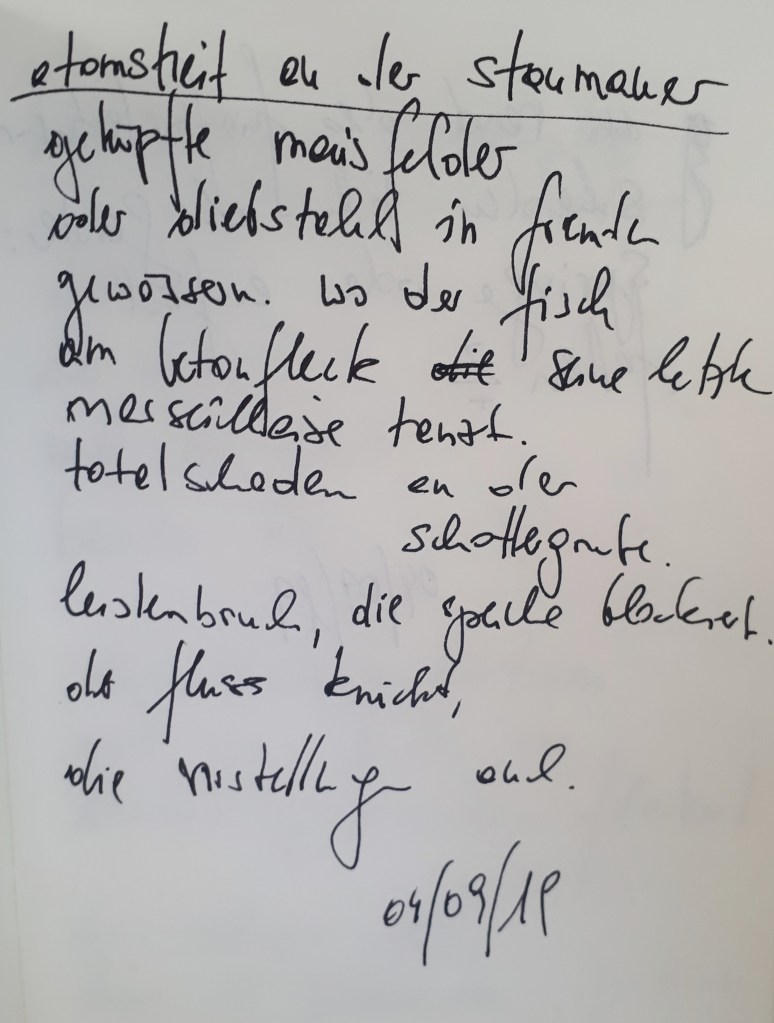 atomstreit an der staumauer
geköpfte maisfelder
oder diebstahl in fremden
gewässern. wo der fisch
am betonfleck die seine letzte
marseillaise tanzt.
totalschaden an der
schottergrube.
leistenbruch, die sprache blockiert.
der fluss knickt,
die vorstellung auch.
04/09/19